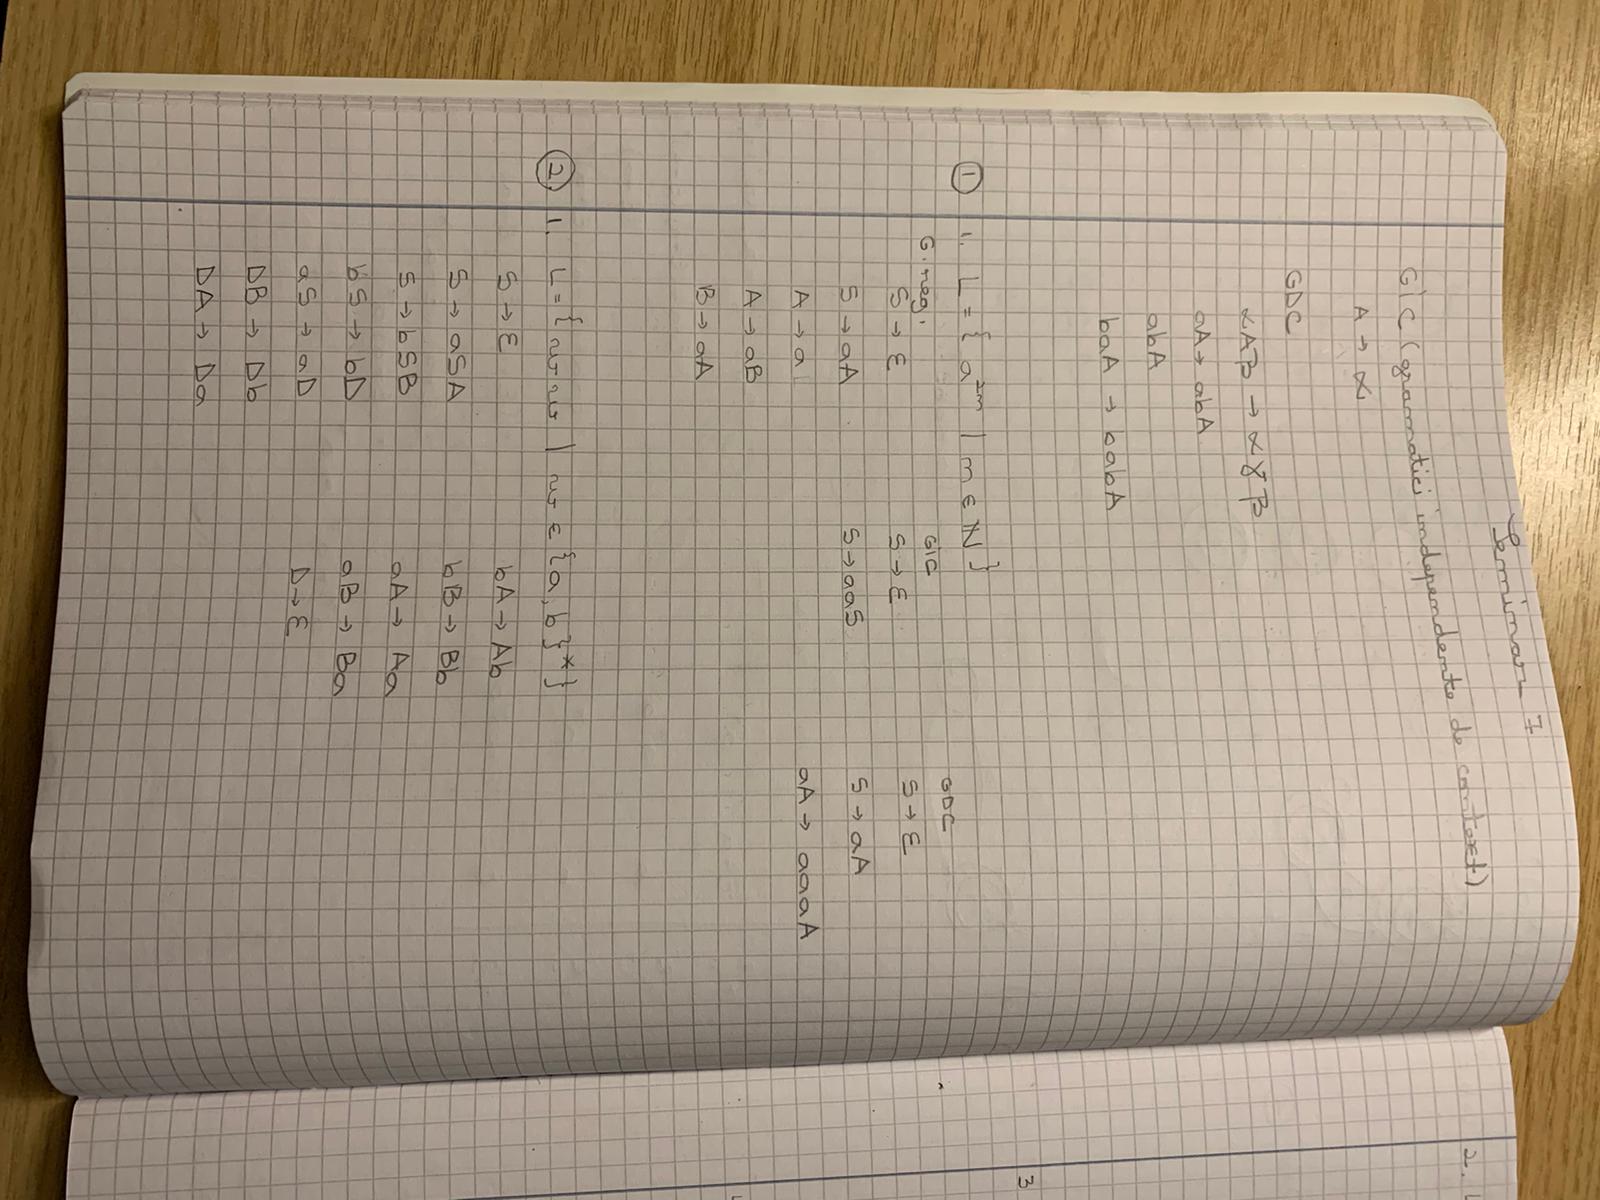 Seminar 7
GIC (gramatici independente de context)
A → α
GDC
αAβ → αγβ
aA → abA
abA
baA → babA
① 1. L = { a²ⁿ | n ∈ ℕ }
G. reg.
S → ε
S → aA
A → a
A → aB
B → aA
GIC
S → ε
S → aaS
GDC
S → ε
S → aA
aA → aaaA
② 1. L = { w w | w ∈ {a, b}* }
S → ε
S → aSA
S → bSB
bS → bD
aS → aD
DB → Db
DA → Da
bA → Ab
bB → Bb
aA → Aa
aB → Ba
D → ε
2. L
3